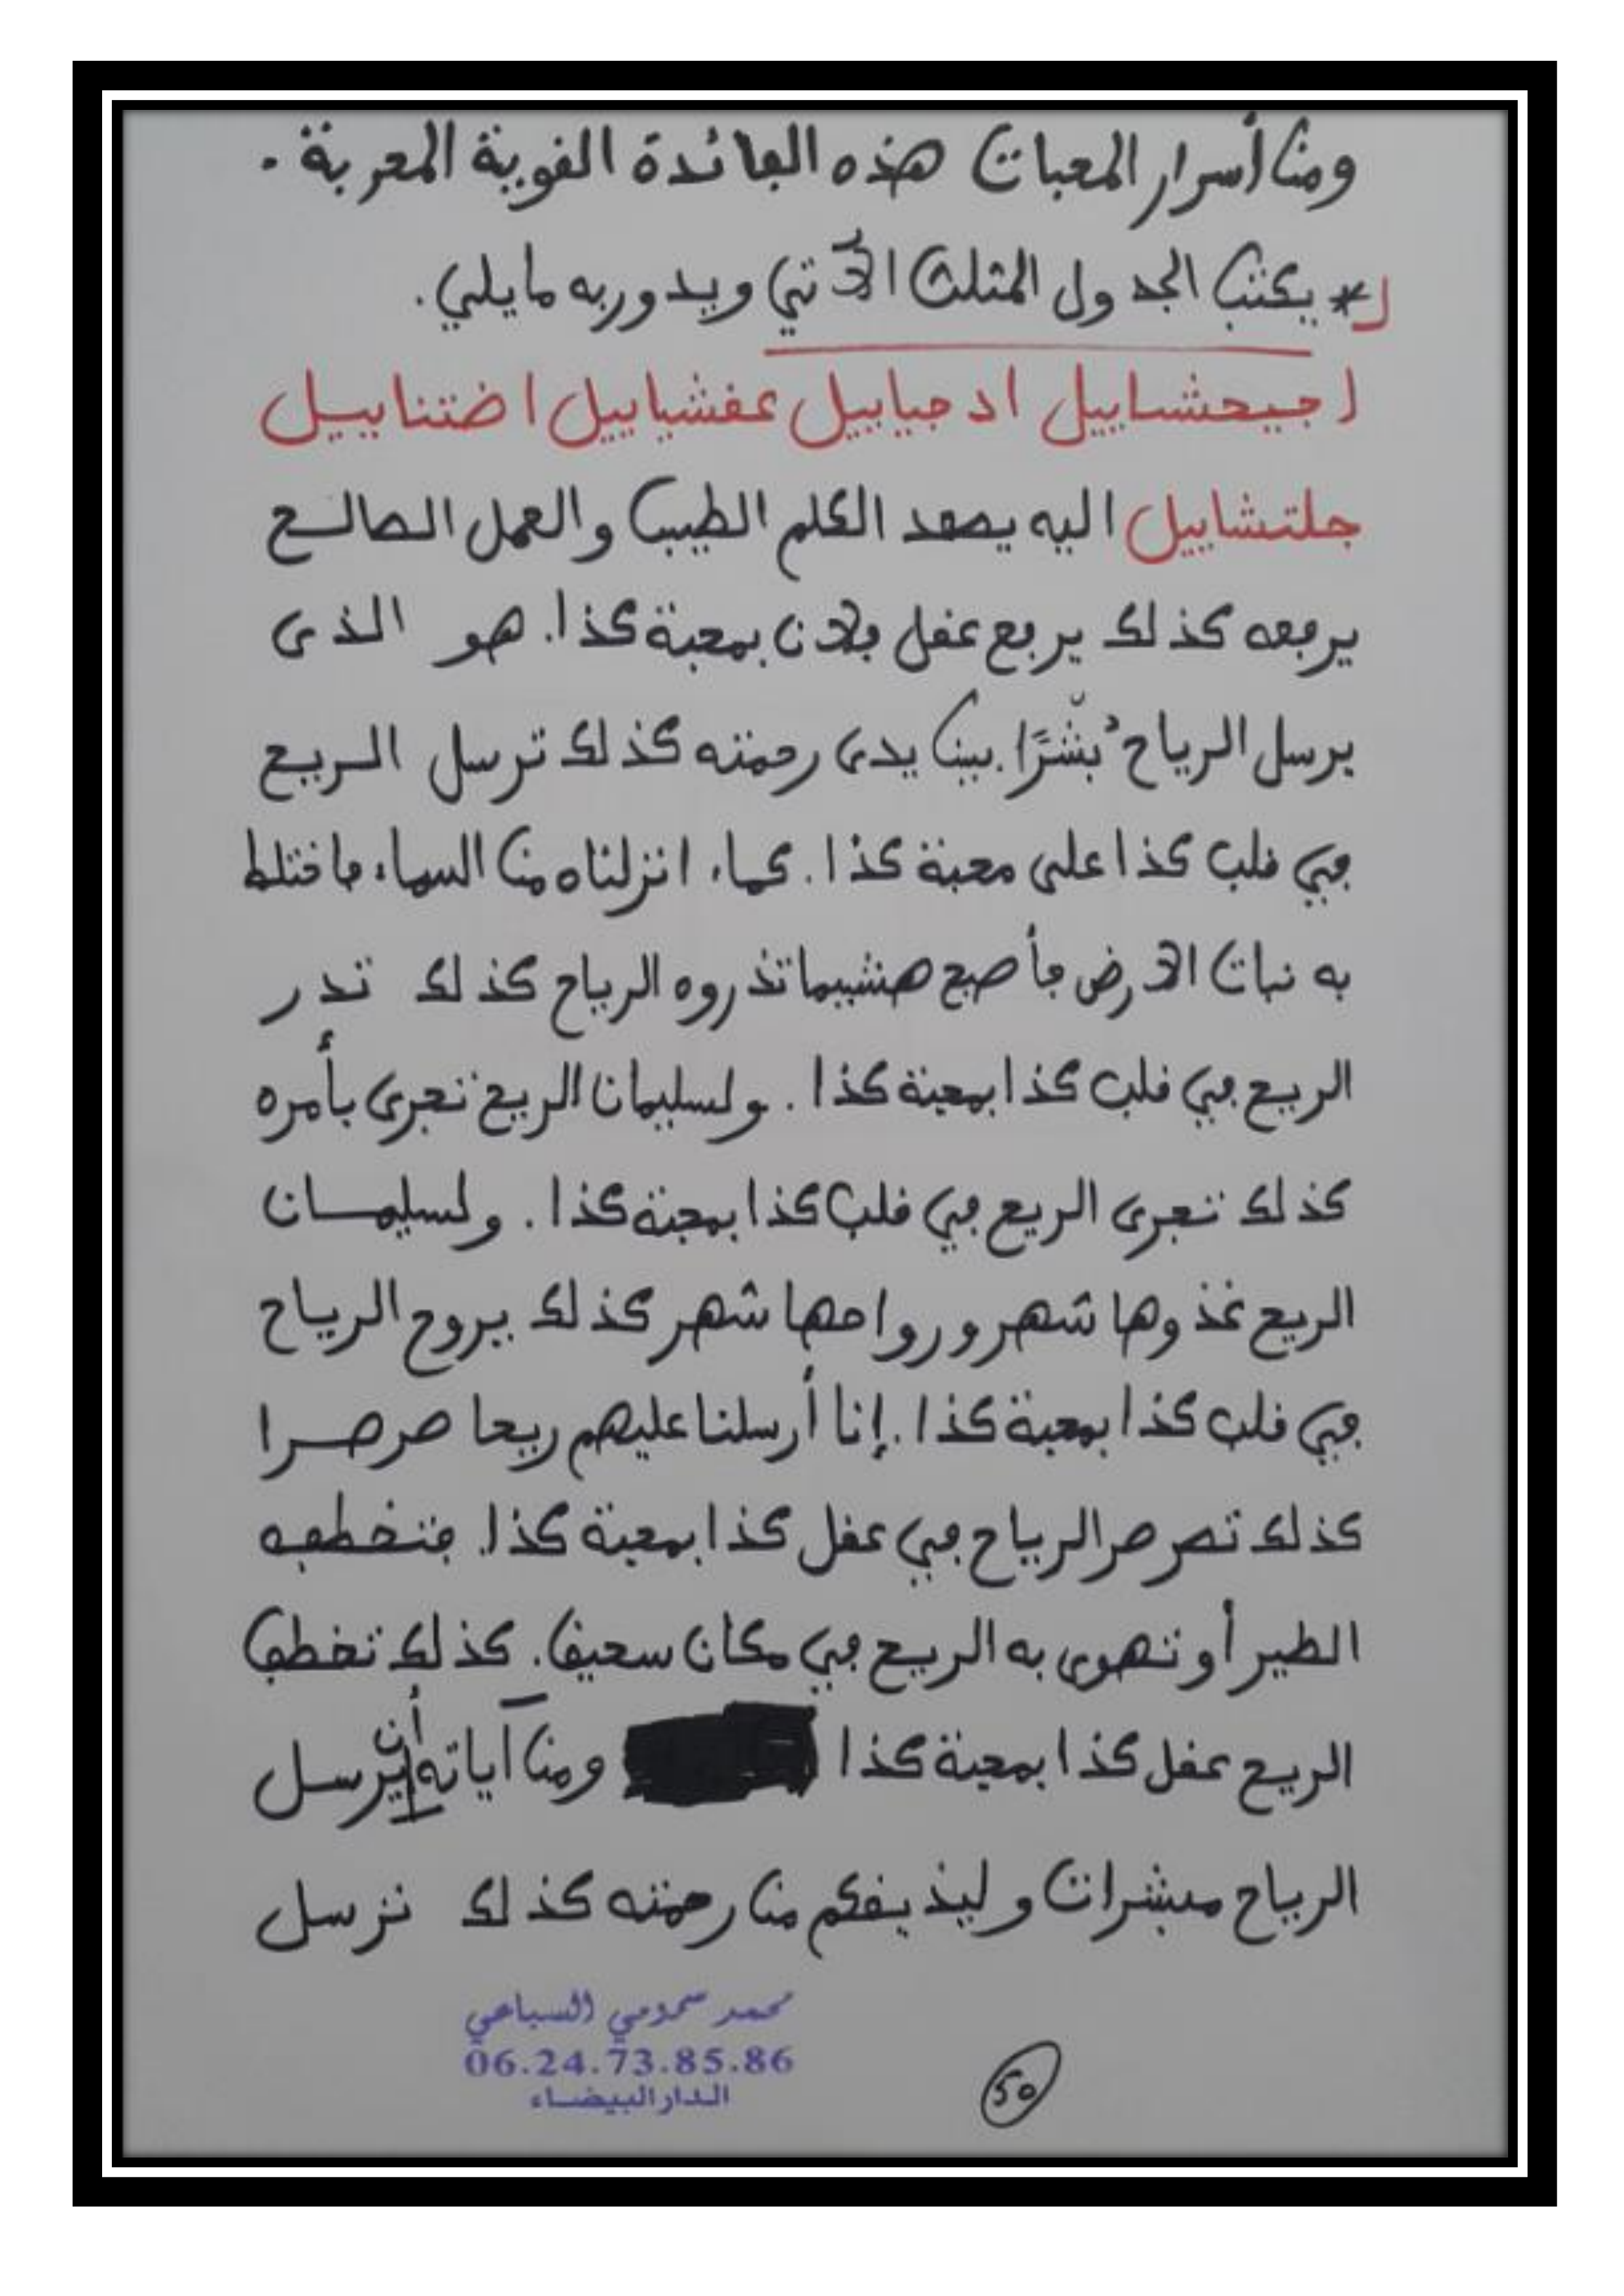 ومن أسرار المحبات هذه الفائدة القوية المجربة.
* يكتب الجدول المثلث الآتي ويدور به ما يلي.
اجيحشاييل ادجيابيل عفشياييل اضتناييل
جلتشاييل اليه يصعد الكلم الطيب والعمل الصالح
يرفعه كذلك يرفع عقل فلان بمحبة كذا. هو الذى
يرسل الرياح بُشْرًا بين يدى رحمته كذلك ترسل الريح
في قلب كذا على محبة كذا. كماء انزلناه من السماء فاختلط
به نبات الارض فأصبح هشيما تذروه الرياح كذلك تدر
الريح في قلب كذا بمحبة كذا. ولسليمان الريح تجرى بأمره
كذلك تجرى الريح في قلب كذا بمحبة كذا. ولسليمان
الريح غذوها شهر ورواحها شهر كذلك يروح الرياح
في قلب كذا بمحبة كذا. إنا أرسلنا عليهم ريحا صرصرا
كذلك تصرصر الرياح في عقل كذا بمحبة كذا. فتخطفه
الطير أو تهوى به الريح في مكان سحيق. كذلك تخطف
الريح عقل كذا بمحبة كذا ومن آياته أن يرسل
الرياح مبشرات وليذيقكم من رحمته كذلك ترسل
محمد صمومي السباعي
06.24.73.85.86
الدار البيضاء
50